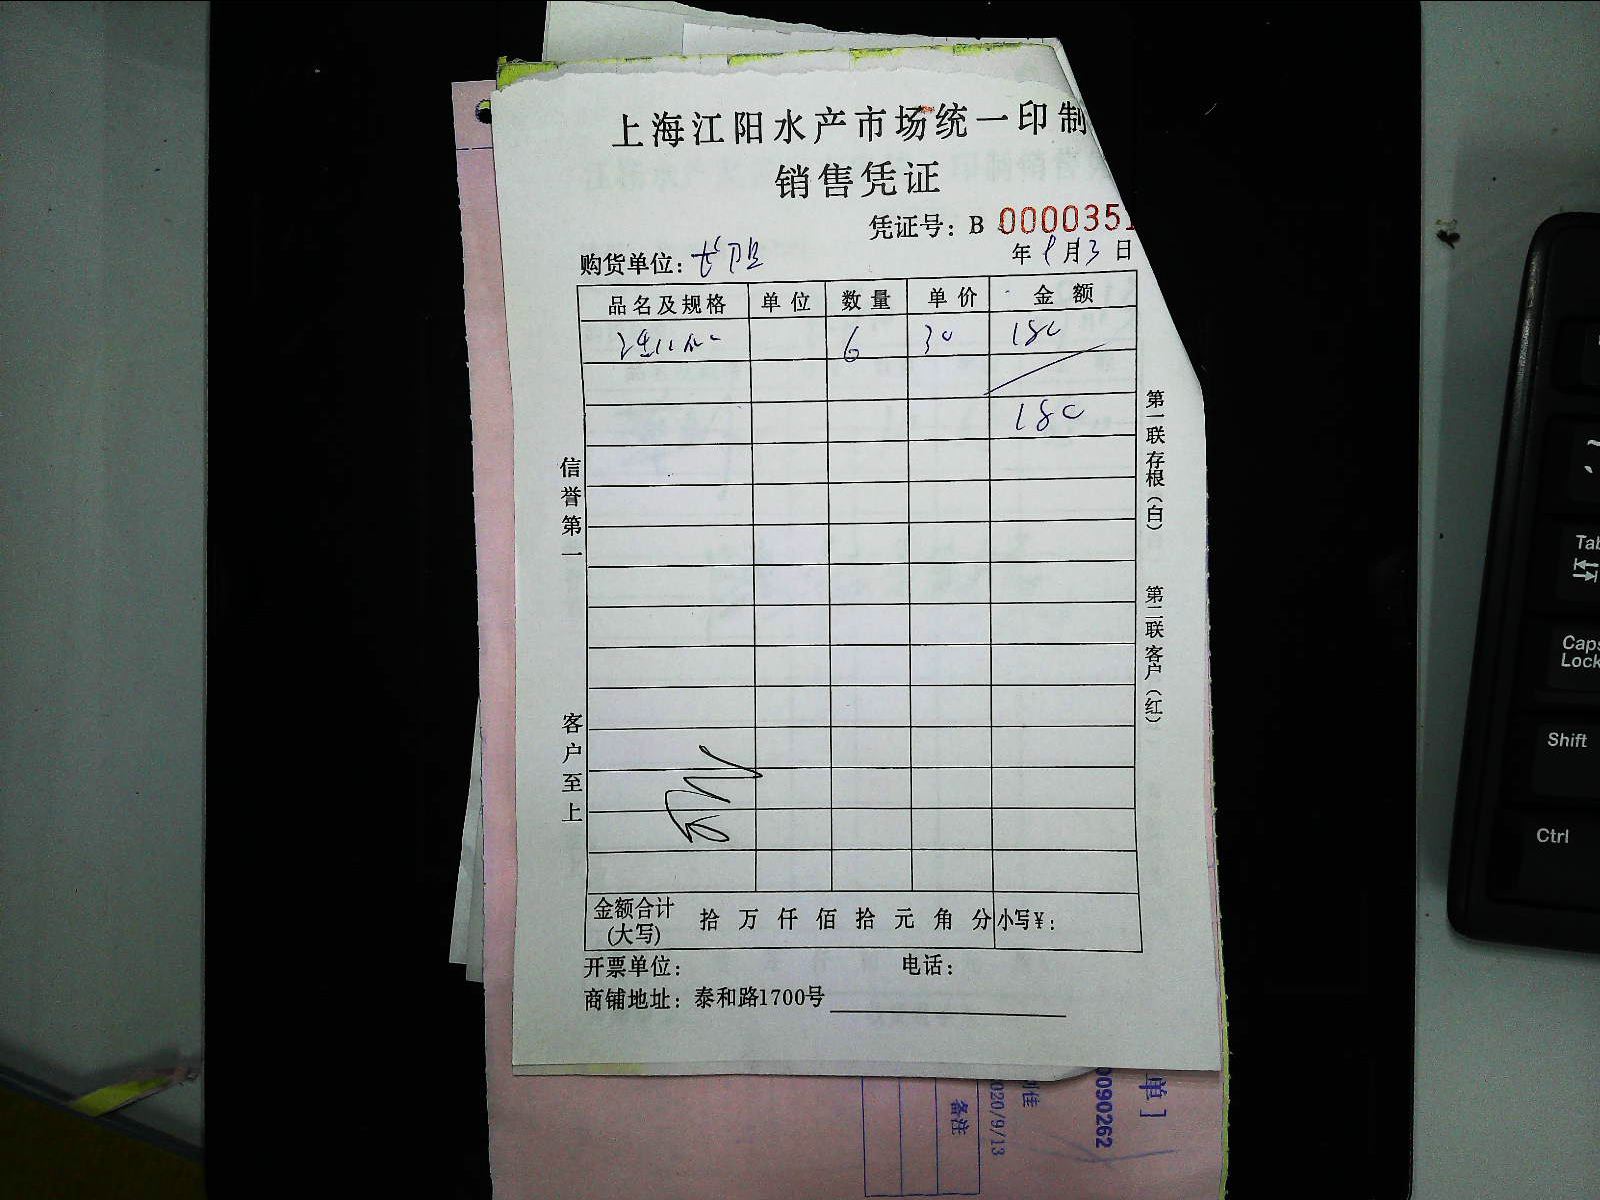 上海江阳水产市场统一印制
销售凭证
凭证号：B 0000351
购货单位：
年 9月3日
品名及规格 单位 数量 单价 金额
6 30 180
180
信誉第一
客户至上
第一联存根（白）
第二联客户（红）
金额合计(大写) 拾 万 仟 佰 拾 元 角 分 小写¥：
开票单位： 电话：
商铺地址：泰和路1700号
单]
0090262
佳
020/9/13
备注
Tab
Caps Lock
Shift
Ctrl